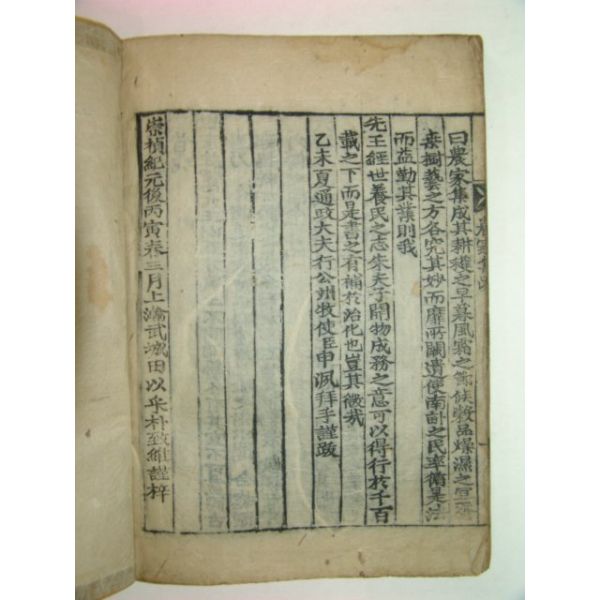 曰農家集成其耕穫之早暮風霜之節候穀品燥濕之宜
種樹藝之方各究其妙而靡所闕遺使南畝之民率循是法
而益勤其業則我
先王經世養民之志朱夫子開物成務之意可以得行於千百
載之下而是書之有補於治化也豈其微哉
乙未夏通政大夫行公州牧使臣申洬拜手謹跋
崇禎紀元後丙寅春三月上澣武城田以采朴致維謹梓
農家集成